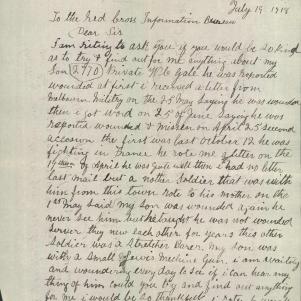 July 19 1918
To the Red Cross Information Bureau
Dear Sir
I am writing to ask you if you would be so kind
as to try & find out for me anything about my
Son 2710 Private W Gale he was reported
wounded at first i received a letter from
Melbourn Miletry on the 25 May saying he was wounded
then i got word on 25 of June saying he was
reported wounded & missen on April 25 second
accosion the first was last October 12 he was
fighting in France he rote me a letter on the
of April he was well then i had no letter
last mail but a nother Soldier that was with
him from this town rote to his mother on the
1st May said my son was wounded again he
never see him but he thought he was not wounded
they new each other for years this other
Soldier was a Stretcher Barer. My son was
with a Small Machine Gun, i am awaiting
and wondering every day to see if i can hear any
thing of him could you try and find out anything
for me i would be so thankfull